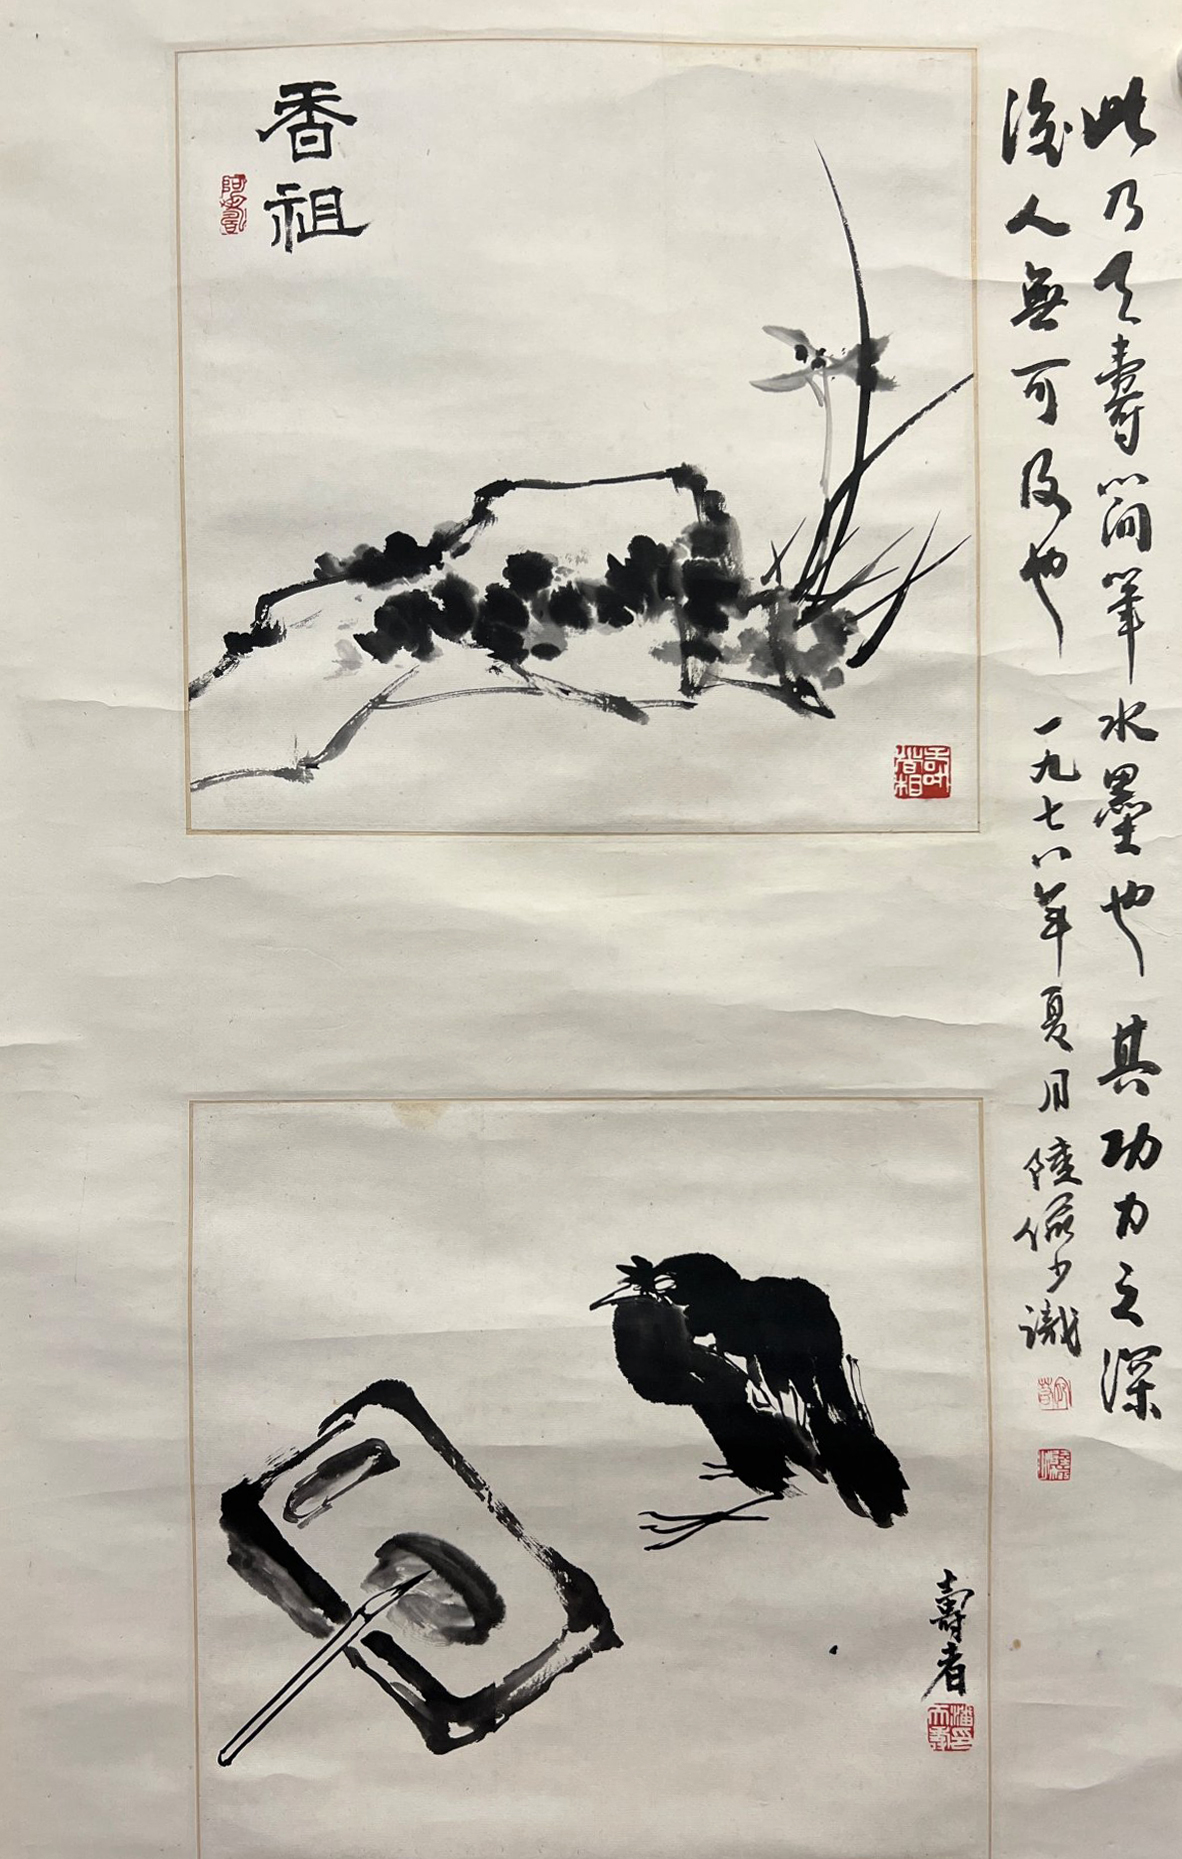 此乃天壽簡筆水墨也其功力之深
後人無可及也一九七八年夏月陸儼少識
香祖
阿壽
壽者
潘天壽印